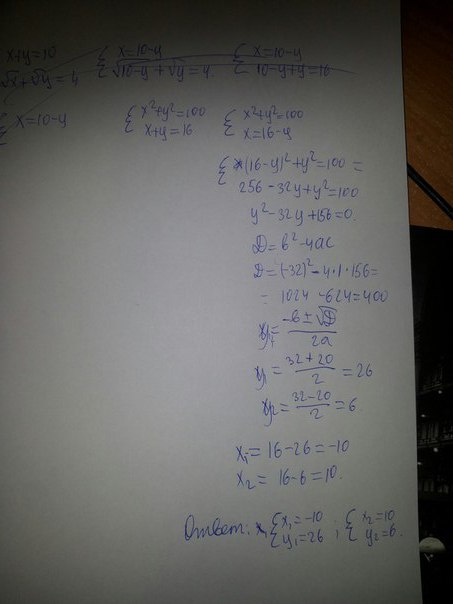 x+y=10 { x=10-y { x=10-y
√x+√y=4 √10-y + √y=4 10-y+y=16
{ x=10-y { x²+y²=100 { x²+y²=100
x+y=16 x=16-y
{ (16-y)²+y²=100 =
256-32y+y²=100
y²-32y+156=0.
D=b²-4ac
D=(-32)²-4·1·156=
= 1024-624=400
y= -b±√D / 2a
y₁= 32+20 / 2 = 26
y₂= 32-20 / 2 = 6.
x₁= 16-26=-10
x₂= 16-6=10.
Ответ: { x₁=-10 ; { x₂=10
y₁=26 y₂=6.